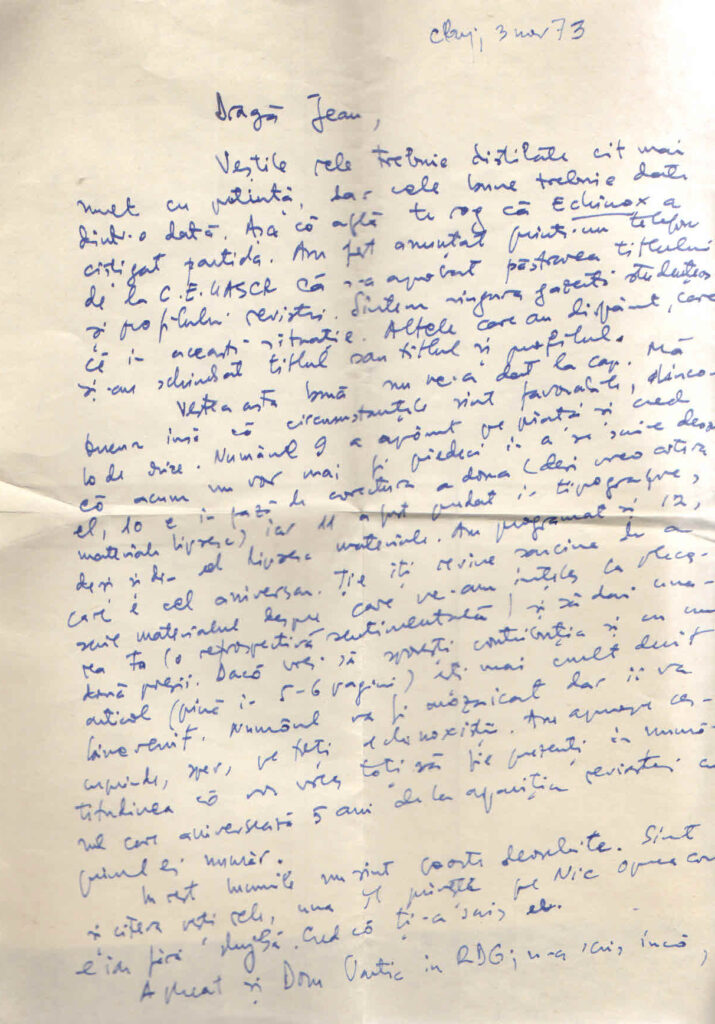 Cluj, 3 nov 73
Dragă Jean,
Veștile rele trebuie distilate cît mai
mult cu putință, dar cele bune trebuie date
dintr-o dată. Așa că află te rog că Echinox a
cîștigat partida. Am fost anunțat printr-un telefon
de la C.E.UASCR că s-a aprobat păstrarea titlului
și profilului revistei. Sîntem singura gazetă studențeas-
că în această situație. Altele care au dispărut, care
și-au schimbat titlul sau titlul și profilul.
Vestea asta bună nu ne-a dat la cap. Mă
însă că circumstanțele sînt favorabile, dinco-
lo de orice. Numărul 9 a apărut pe piață și cred
că acum nu vor mai fi piedici în a se scrie despre
el, 10 e în fază de corectura a doua (deși vreo cîteva
materiale lipsesc) iar 11 a fost predat în tipografie,
deși și de- el lipsesc materiale. Am programat și 12,
care e cel aniversar. Ție îți revine sarcina de a
scrie materialul despre care ne-am înțeles la pleca-
rea ta (o retrospectivă sentimentală) și să dai una-
două poezii. Dacă vrei să sporești contribuția și cu un
articol (pînă în 5-6 pagini) ești mai mult decît
binevenit. Numărul va fi mozaicat dar îi va
cuprinde, sper, pe toți echinoxiștii. Am aproape cer-
titudinea că vor vrea toți să fie prezenți în numă-
rul care aniversează 5 ani de la apariția revistei cu
primul ei număr.
În rest lucrurile nu sînt deosebite. Sînt
și cîteva vești rele, una îl privește pe Nic Oprea care
e în fără slujbă. Cred că ți-a scris el.
A plecat și Dom Vartic în RDG; n-a scris încă,